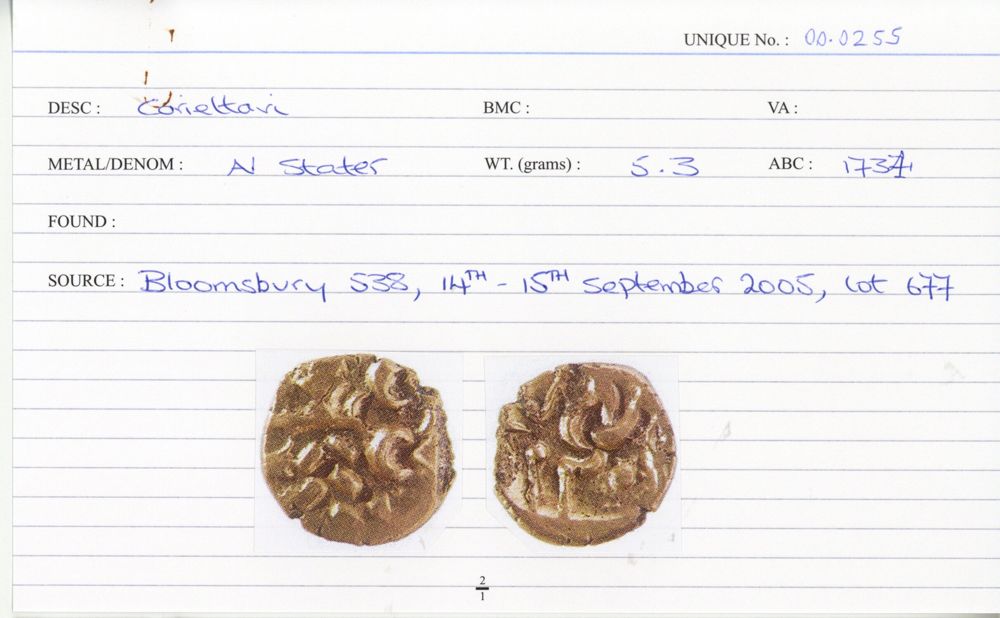 UNIQUE No. : 00.0255
DESC : Corieltavi BMC : VA :
METAL/DENOM : AV Stater WT. (grams) : 5.3 ABC :
FOUND :
SOURCE : Bloomsbury 538, 14TH - 15TH September 2005, Lot 677
2
1